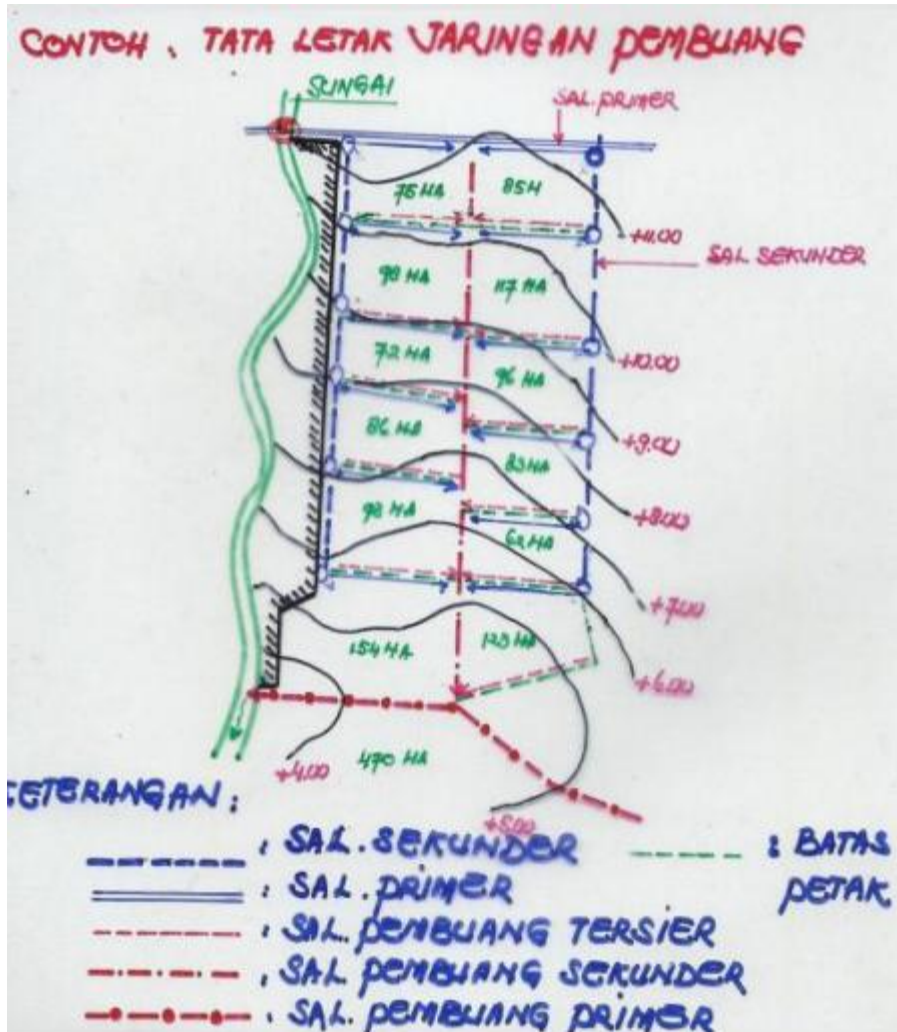 CONTOH. TATA LETAK JARINGAN PEMBUANG
SUNGAI
SAL. PRIMER
75 HA
85H
+11.00
SAL SEKUNDER
98 HA
117 HA
+10.00
72 HA
96 HA
+9.00
86 HA
83 HA
+8.00
98 HA
62 HA
+7.00
154 HA
123 HA
+6.00
+4.00
470 HA
+5.00
KETERANGAN:
: SAL. SEKUNDER
: BATAS
PETAK
: SAL. PRIMER
: SAL. PEMBUANG TERSIER
: SAL PEMBUANG SEKUNDER
: SAL. PEMBUANG PRIMER